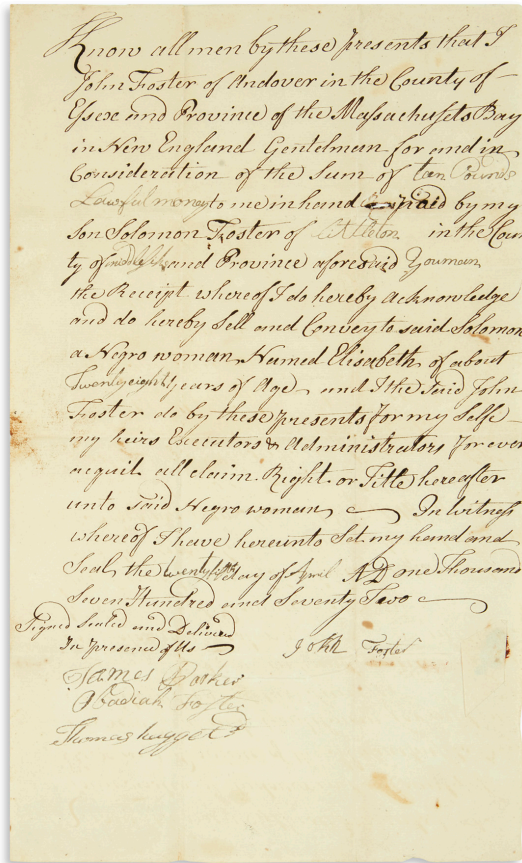 Know all men by these presents that I
John Foster of Andover in the County of
Essex and Province of the Massachusets Bay
in New England Gentelman for and in
Consideration of the Sum of ten Pounds
Lawful money to me in hand paid by my
son Solomon Foster of Littleton in the Coun
ty of middlesex and Province aforesaid Youman
the Receipt whereof I do hereby acknowledge
and do hereby Sell and Convey to said Solomon
a Negro woman Named Elisabeth of about
Twenty eight years of Age and I the said John
Foster do by these presents for my Selfe
my heirs Executors & Administrators for ever
acquit all claim Right or Title hereafter
unto said Negro woman In Witness
whereof I have hereunto Set my hand and
Seal the day of April AD one Thousand
Seven Hundred and Seventy Two
Signed Sealed and Delivered
In presence of Us John Foster
James Parker
Obadiah Foster
Thomas